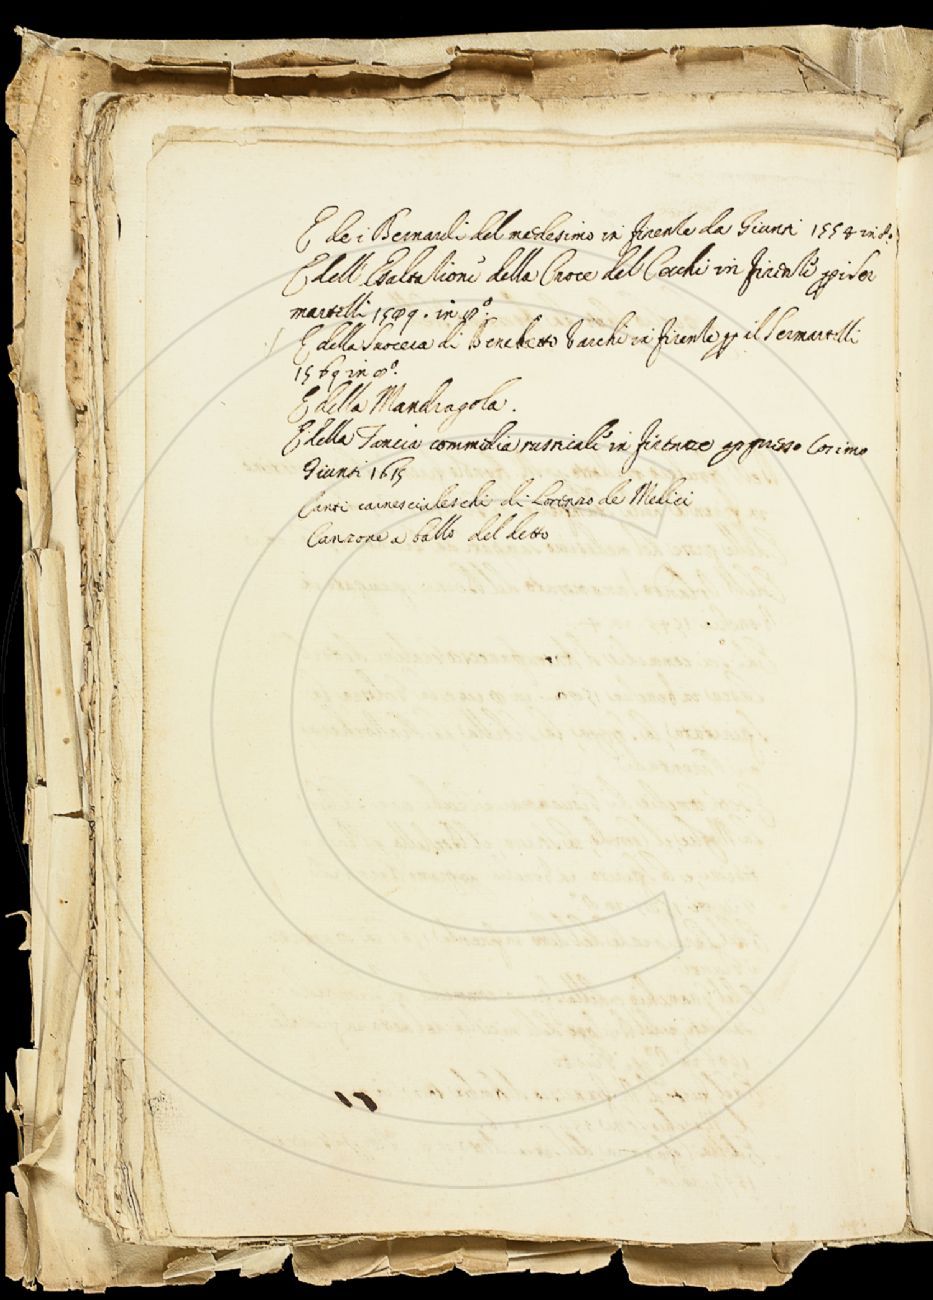 E de i Bernardi del medesimo in firenze da Giunti 1554 in 8.
E dell'Esaltatione della Croce del Cecchi in firenze ꝑ i Ser
martelli 1589. in 8º.
E della Suocera di Benedetto Varchi in firenze ꝑ il Sermartelli
1569 in 8º.
E della Mandragola.
E della Tancia commedia rusticale in firenze appresso Cosimo
Giunti 1615
Canti carnescialeschi di Lorenzo de Medici
Canzone a ballo del detto